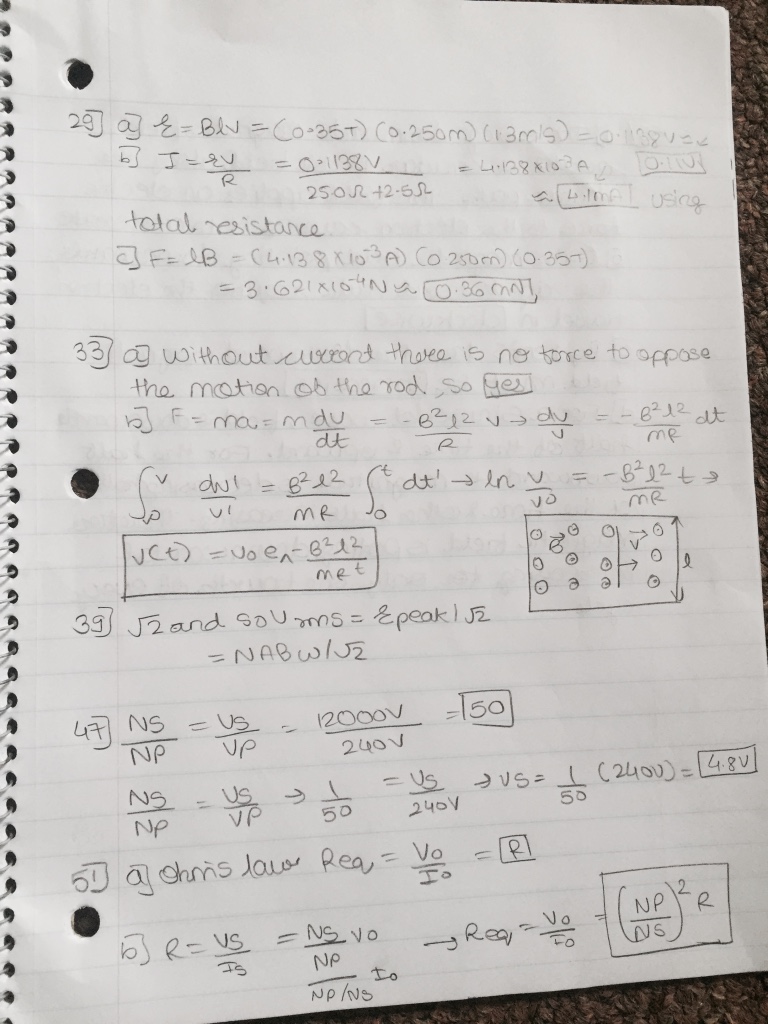 29] a] ℰ = Blv = (0.35T) (0.250m) (1.3m/s) = 0.1138V = 0.11V
b] I = ℰV/R = 0.1138V / 25.0Ω + 2.5Ω = 4.138×10⁻³A ≈ 4.1mA using
total resistance
c] F = lB = (4.138×10⁻³A) (0.250m) (0.35T)
= 3.621×10⁻⁴N ≈ 0.36mN
33] a] without current there is no force to oppose
the motion of the rod, so yes
b] F = ma = m dv/dt = -B²l²/R v → dv/v = -B²l²/mR dt
∫₀ᵛ dv'/v' = B²l²/mR ∫₀ᵗ dt' → ln v/v0 = -B²l²/mR t →
v(t) = v0 e^ -B²l²/mR t
B v l
39] √2 and so Vrms = ℰpeak/√2
= NABW/√2
47] NS/NP = VS/VP = 12000V/240V = 50
NS/NP = VS/VP → 1/50 = VS/240V → VS = 1/50 (240V) = 4.8V
51] a] ohm's law Req = V0/I0 = R
b] R = VS/IS = NS/NP V0 / NP/NS I0 → Req = V0/I0 = (NP/NS)² R